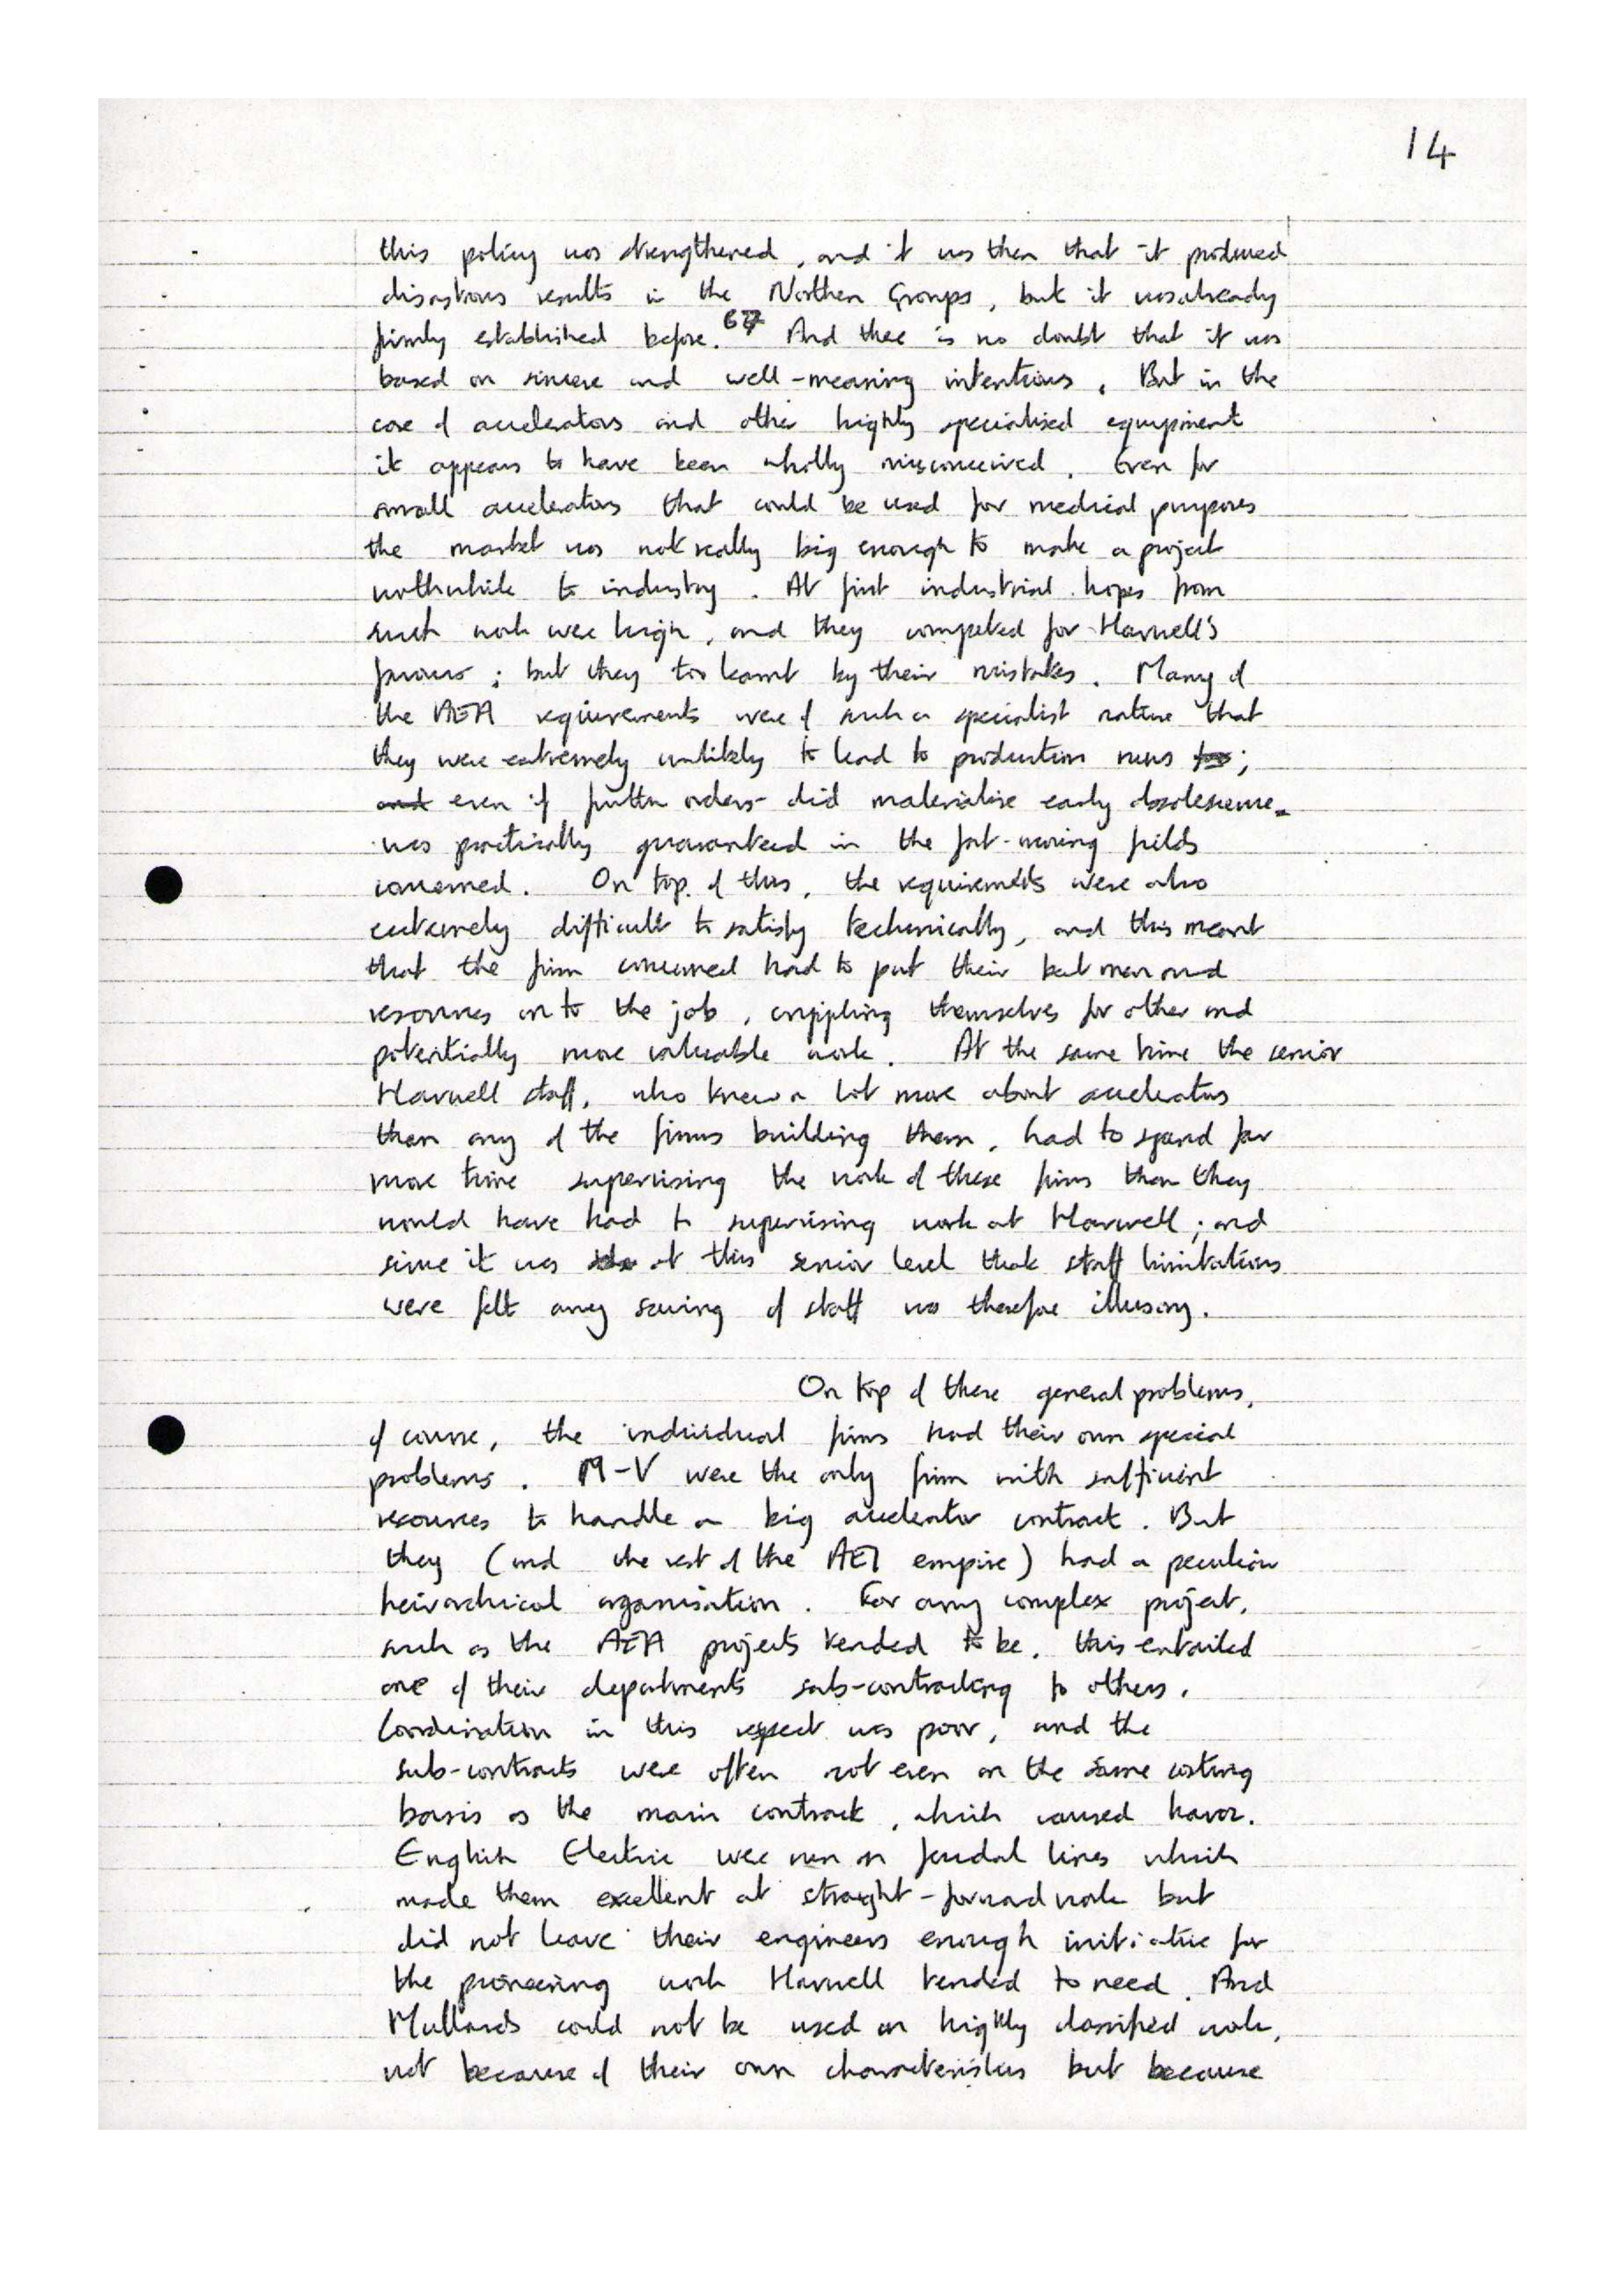 14
this policy was strengthened, and it was then that it produced
disastrous results in the Northern Groups, but it was already
firmly established before. 67 And there is no doubt that it was
based on sincere and well-meaning intentions. But in the
case of accelerators and other highly specialised equipment
it appears to have been wholly misconceived. Even for
small accelerators that could be used for medical purposes
the market was not really big enough to make a project
worthwhile to industry. At first industrial hopes from
such work were high, and they competed for Harwell's
favours; but they too learnt by their mistakes. Many of
the AEA requirements were of such a specialist nature that
they were extremely unlikely to lead to production runs;
and even if further orders did materialise early obsolescence
was practically guaranteed in the fast-moving fields
concerned. On top of this, the requirements were also
extremely difficult to satisfy technically, and this meant
that the firm concerned had to put their best men and
resources on to the job, crippling themselves for other and
potentially more valuable work. At the same time the senior
Harwell staff, who knew a lot more about accelerators
than any of the firms building them, had to spend far
more time supervising the work of these firms than they
would have had to supervising work at Harwell; and
since it was at this senior level that staff limitations
were felt any saving of staff was therefore illusory.
On top of these general problems,
of course, the individual firms had their own special
problems. M-V were the only firm with sufficient
resources to handle a big accelerator contract. But
they (and the rest of the AEI empire) had a peculiar
heirarchical organisation. For any complex project,
such as the AEA projects tended to be, this entailed
one of their departments sub-contracting to others.
Coordination in this respect was poor, and the
sub-contracts were often not even on the same costing
basis as the main contract, which caused havoc.
English Electric were run on feudal lines which
made them excellent at straight-forward work but
did not leave their engineers enough initiative for
the pioneering work Harwell tended to need. And
Mullards could not be used on highly classified work,
not because of their own characteristics but because